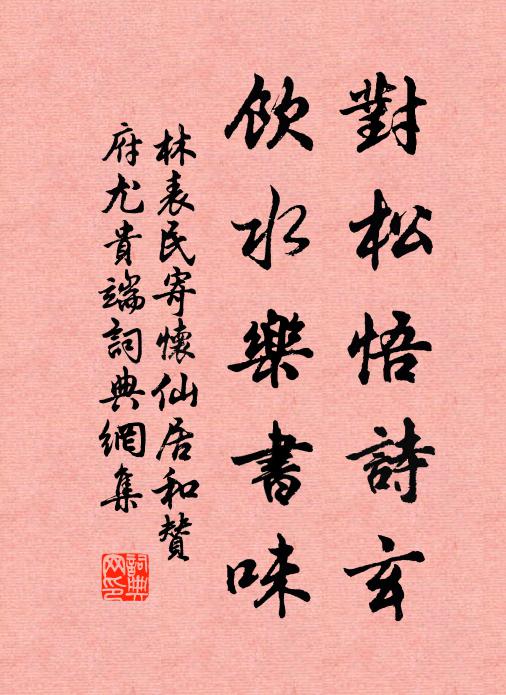 對松悟詩玄
飲水樂書味
林表民寄懷仙居和贊
府尤貴端詞典網集
詞典
网印